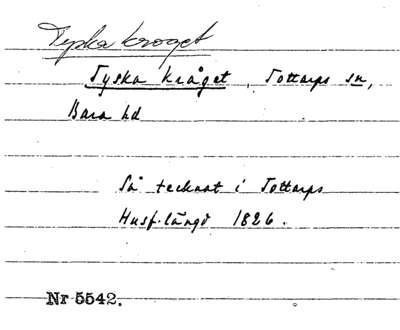 Tyska kroget
Tyska kråget, Tottarps sn,
Bara hd
Så tecknat i Tottarps
Husf.längd 1826.
Nr 5542.